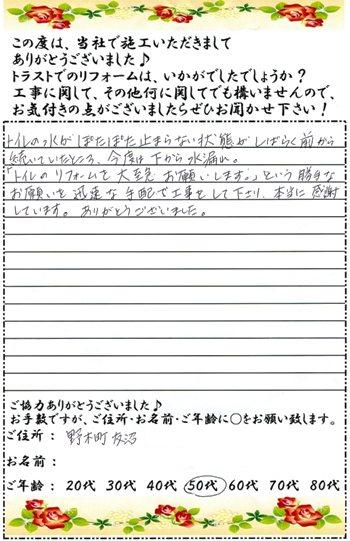 この度は、当社で施工いただきまして
ありがとうございました♪
トラストでのリフォームは、いかがでしたでしょうか？
工事に関して、その他何に関してでも構いませんので、
お気付きの点がございましたらぜひお聞かせ下さい！
トイレの水がぽたぽた止まらない状態がしばらく前から
続いていたところ、今度は下から水漏れ。
「トイレのリフォームを大至急お願いします。」という勝手な
お願いを迅速な手配で工事をして下さり、本当に感謝
しています。ありがとうございました。
ご協力ありがとうございました♪
お手数ですが、ご住所・お名前・ご年齢に○をお願い致します。
ご住所： 野木町友沼
お名前：
ご年齢： 20代 30代 40代 50代 60代 70代 80代